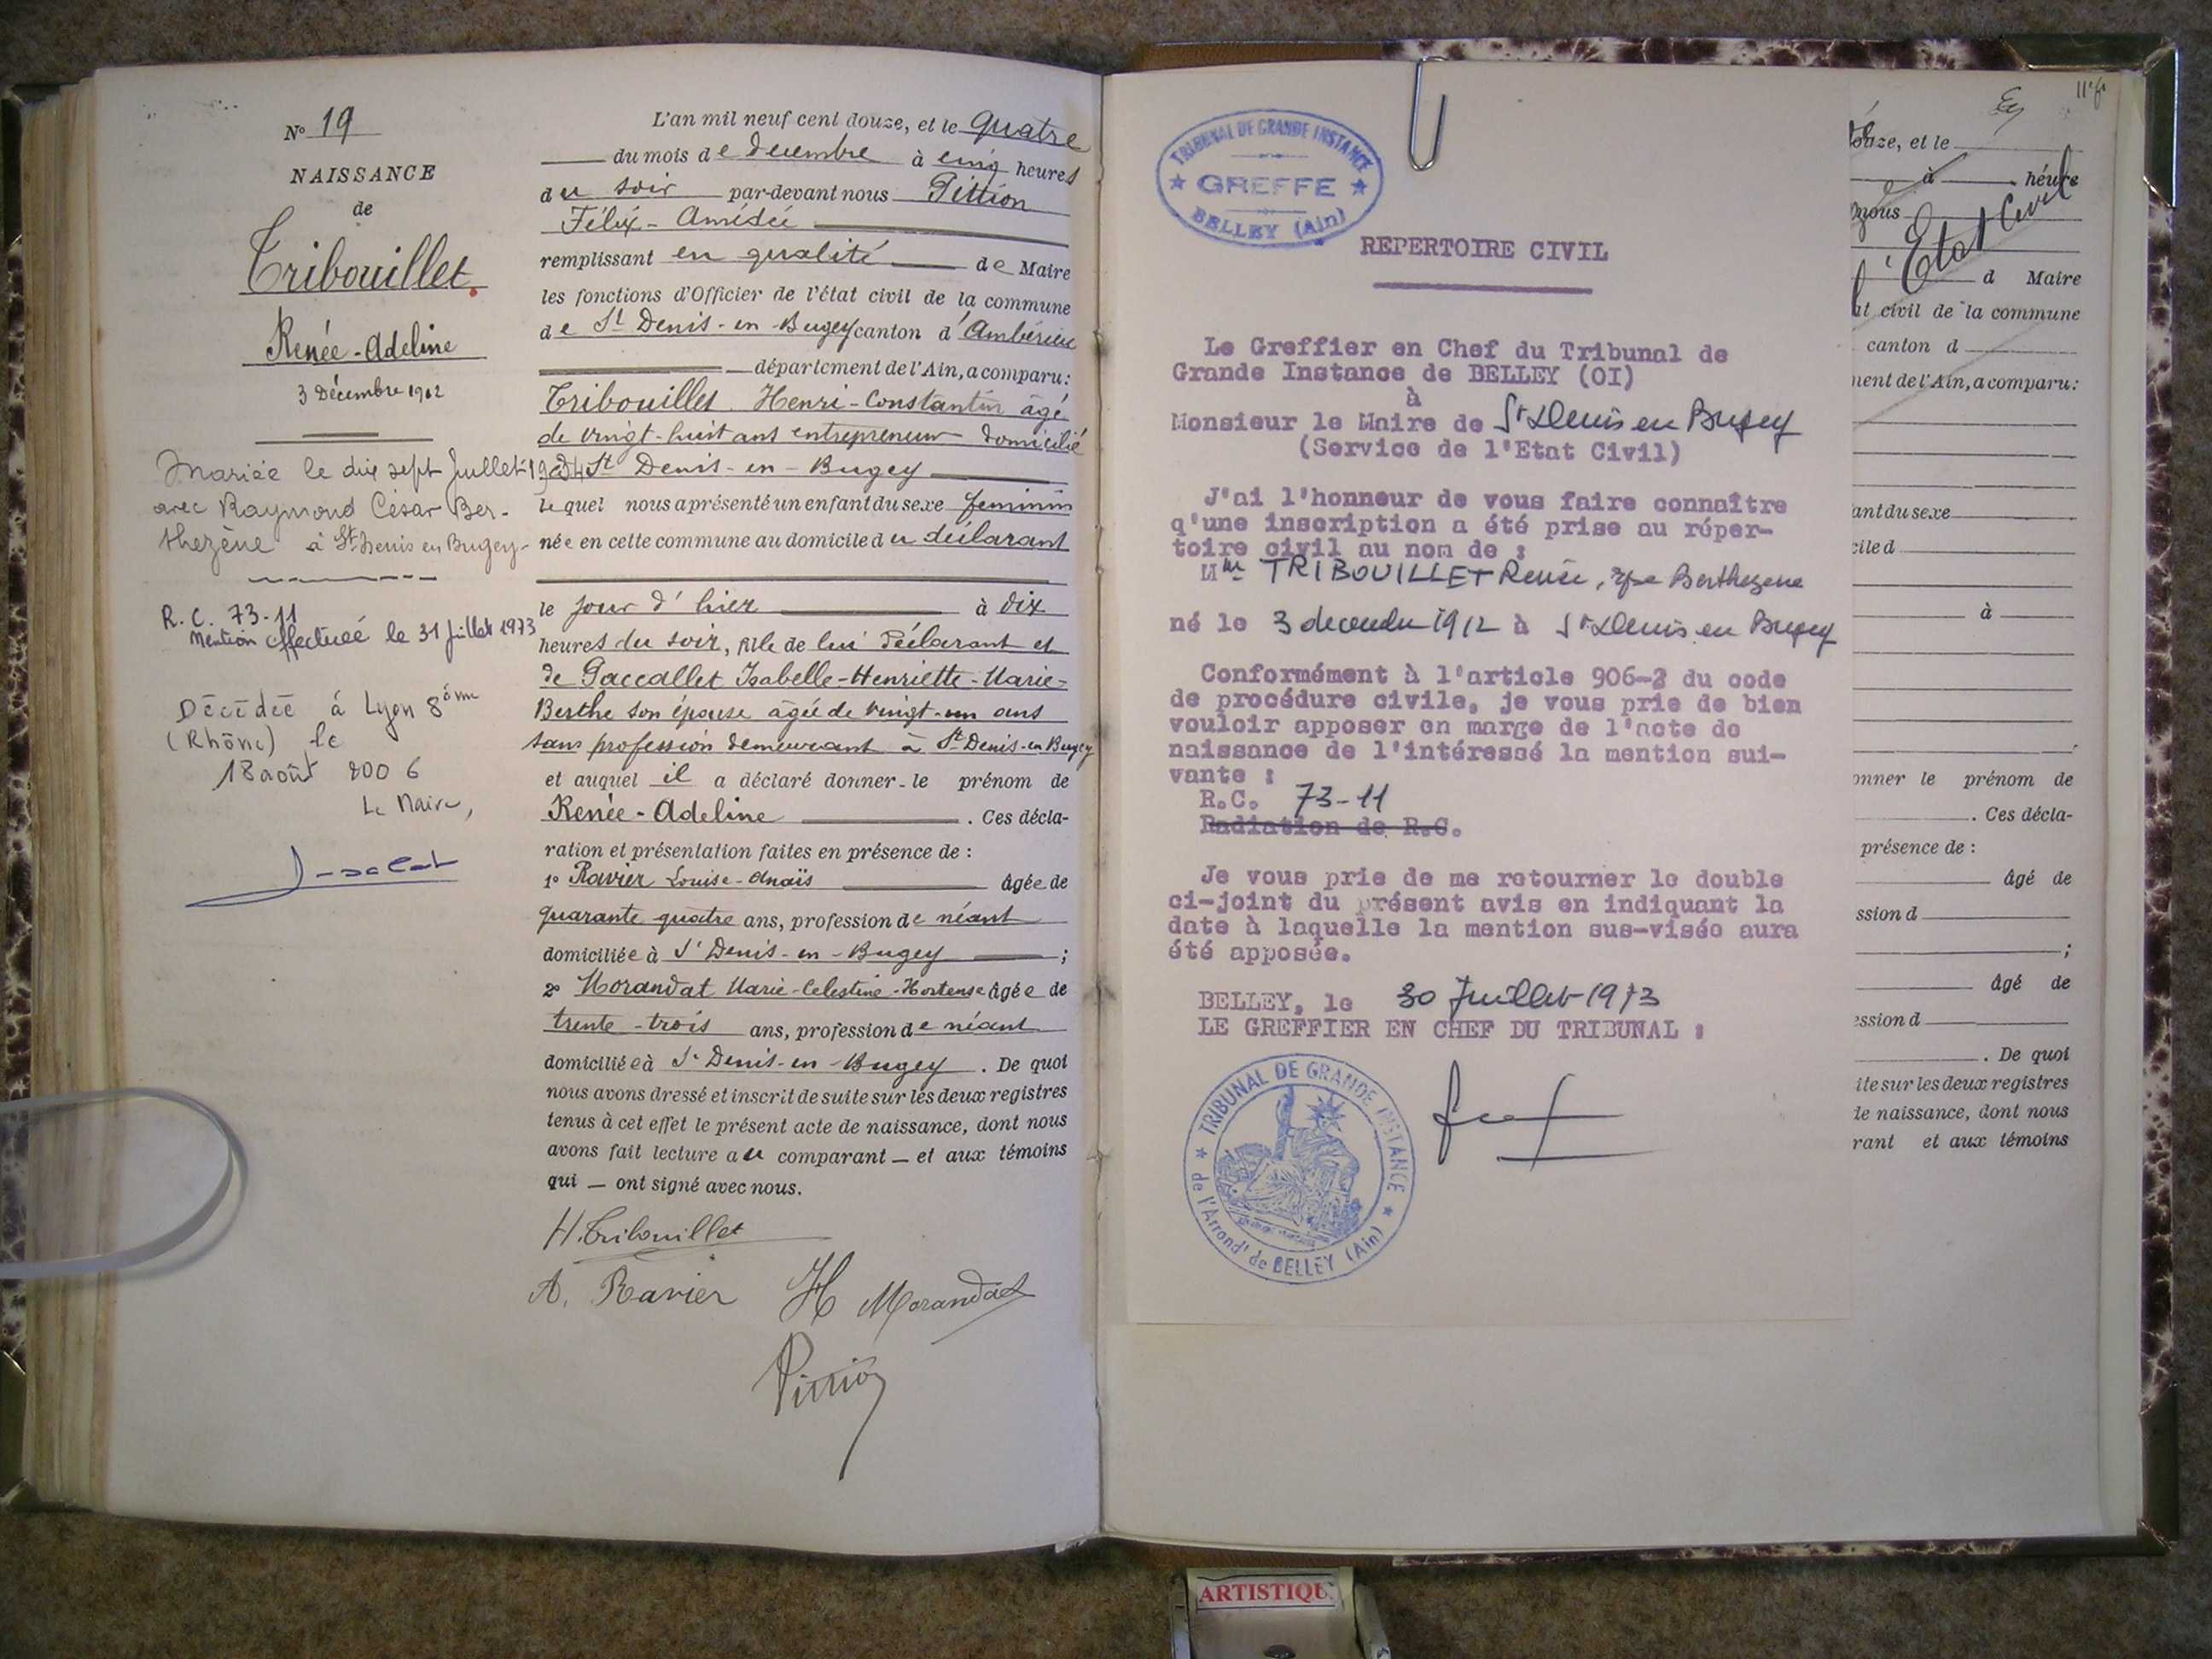 N° 19
NAISSANCE
de
Tribouillet
Renée-Adeline
3 Décembre 1912
Mariée le dix sept Juillet 1934
avec Raymond César Ber-
thezène à St Denis en Bugey-
R. C. 73-11
Mention effectuée le 31 juillet 1973
Décédée à Lyon 8ème
(Rhône) le
18 août 2006
Le Maire,
L'an mil neuf cent douze, et le quatre
du mois de decembre à cinq heures
du soir par-devant nous Pittion
Félix-Amédée
remplissant en qualité de Maire
les fonctions d'Officier de l'état civil de la commune
de St Denis-en-Bugey canton d'Ambérieu
département de l'Ain, a comparu :
Tribouillet Henri-Constantin âgé
de vingt-huit ans entrepreneur domicilié
à St Denis-en-Bugey
lequel nous a présenté un enfant du sexe feminin
née en cette commune au domicile du déclarant
le jour d'hier à dix
heures du soir, fille de lui déclarant et
de Paccallet Isabelle-Henriette-Marie-
Berthe son épouse âgée de vingt-un ans
sans profession demeurant à St Denis-en-Bugey
et auquel il a déclaré donner le prénom de
Renée-Adeline. Ces décla-
ration et présentation faites en présence de :
1° Ravier Louise-Anaïs âgée de
quarante quatre ans, profession de néant
domiciliée à St Denis-en-Bugey ;
2° Morandat Marie-Celestine-Hortense âgée de
trente-trois ans, profession de néant
domiciliée à St Denis-en-Bugey. De quoi
nous avons dressé et inscrit de suite sur les deux registres
tenus à cet effet le présent acte de naissance, dont nous
avons fait lecture au comparant et aux témoins
qui ont signé avec nous.
H. Tribouillet
A. Ravier H Morandat
Pittion
TRIBUNAL DE GRANDE INSTANCE
GREFFE
BELLEY (Ain)
REPERTOIRE CIVIL
Le Greffier en Chef du Tribunal de
Grande Instance de BELLEY (OI)
à
Monsieur le Maire de St Denis en Bugey
(Service de l'Etat Civil)
J'ai l'honneur de vous faire connaître
qu'une inscription a été prise au réper-
toire civil au nom de :
Mme TRIBOUILLET Renée, épse Berthezene
né le 3 decembre 1912 à St Denis en Bugey
Conformément à l'article 906-2 du code
de procédure civile, je vous prie de bien
vouloir apposer en marge de l'acte de
naissance de l'intéressé la mention sui-
vante :
R.C. 73-11
Radiation de R.C.
Je vous prie de me retourner le double
ci-joint du présent avis en indiquant la
date à laquelle la mention sus-visée aura
été apposée.
BELLEY, le 30 Juillet 1973
LE GREFFIER EN CHEF DU TRIBUNAL :
TRIBUNAL DE GRANDE INSTANCE
de l'Arrond' de BELLEY (Ain)
douze, et le
à heure
nous
l'Etat Civil
d Maire
at civil de la commune
canton d
ment de l'Ain, a comparu :
ant du sexe
cile d
à
onner le prénom de
. Ces décla-
présence de :
âgé de
ssion d
;
âgé de
ession d
. De quoi
ite sur les deux registres
de naissance, dont nous
rant et aux témoins
ARTISTIQU